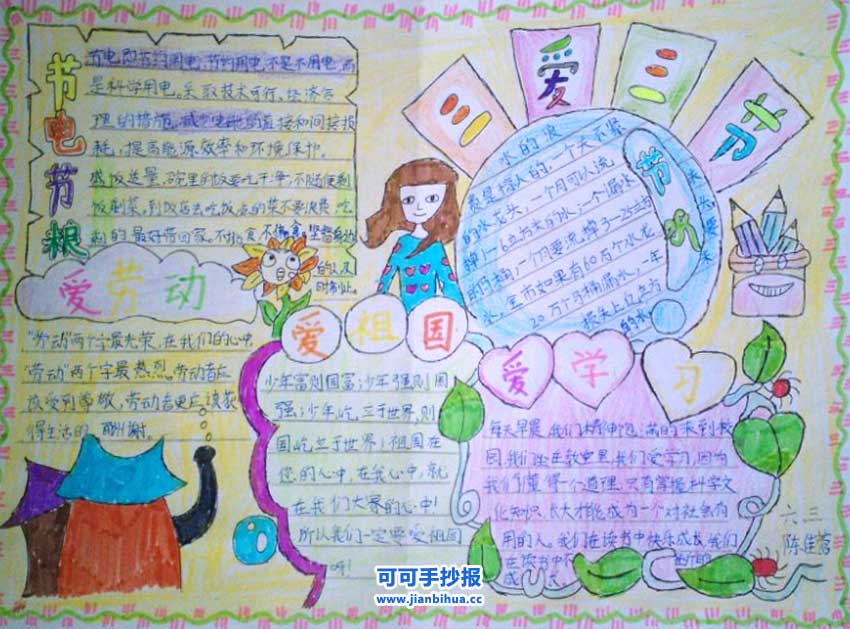 三爱三节
节电节粮
节电即节约用电,节约用电,不是不用电,而
是科学用电。采取技术可行、经济合
理的措施,减少电能的直接和间接损
耗,提高能源效率和环境保护。
盛饭适量,碗里的饭要吃干净,不随便剩
饭剩菜,到饭店去吃饭点的菜不要浪费,吃
剩的最好带回家。不挑食不偏食,坚督身边
的人及
时制止。
节水
水的浪
费是惊人的,一个关不紧
的水龙头,一个月可以流
掉1-6立方米的水,一个漏水
的马桶,一个月要流掉3-25立方
水,全市如果有60万个水龙
20万个马桶漏水,一年
损失上亿立方
的水
爱劳动
"劳动"两个字最光荣,在我们的心中,
"劳动"两个字最热烈。劳动者应
该受到尊敬,劳动者更应该获
得生活的酬谢。
爱祖国
少年富则国富,少年强则国
强,少年屹立于世界,则
国屹立于世界!祖国在
您的心中,在我心中,就
在我们大家的心中!
所以我们一定要爱祖国
呀!
爱学习
每天早晨,我们精神饱满的来到校
园,我们坐在教室里,我们爱学习,因为
我们懂得一个道理,只有掌握科学文
化知识,长大才能成为一个对社会有
用的人。我们在读书中快乐成长,我们
在读书中
成
六三
陈佳
可可手抄报
www.jianbihua.cc